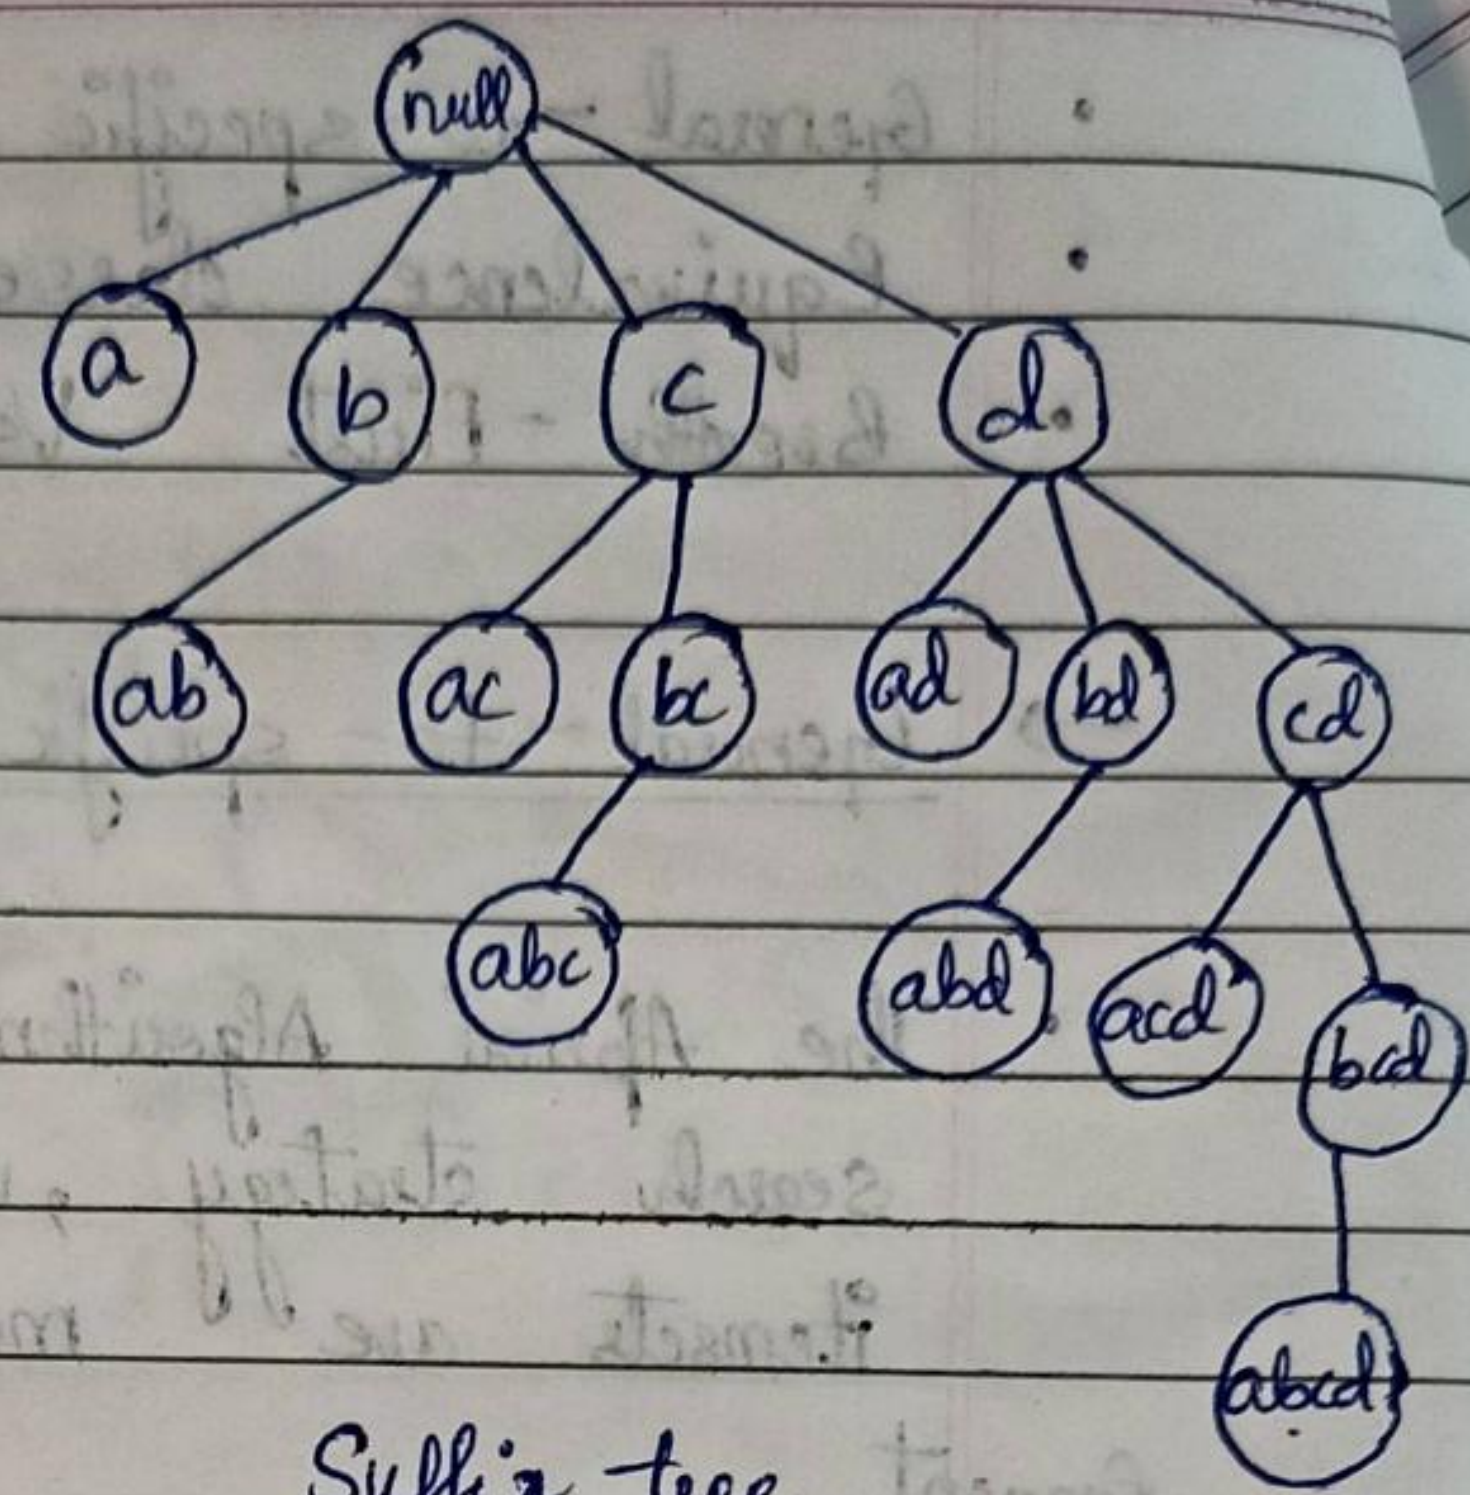 null
a b c d
ab ac bc ad bd cd
abc abd acd bcd
abcd
Suffix tree